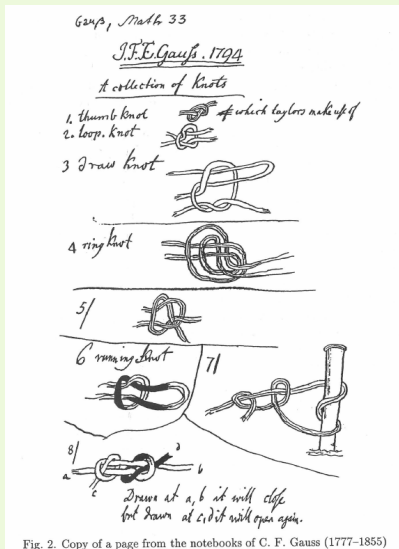 Gauß, Math 33
J.F.E. Gauß. 1794
A collection of Knots
1. thumb knot of which taylors make use of
2. loop. knot
3 draw knot
4 ring knot
5/
6 running knot
7/
8/
a
c
d
b
Drawn at a, b it will close
but drawn at c, d it will open again.
Fig. 2. Copy of a page from the notebooks of C. F. Gauss (1777–1855)